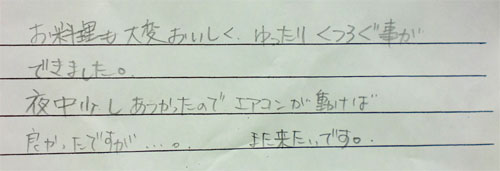 お料理も大変おいしく、ゆったりくつろぐ事が
できました。
夜中少しあつかったので エアコンが動けば
良かったですが…。 また来たいです。